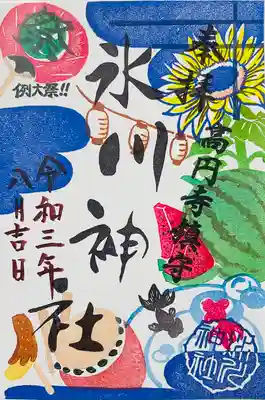 奉拝
高円寺鎮守
氷川神社
例大祭!!
令和三年
八月吉日